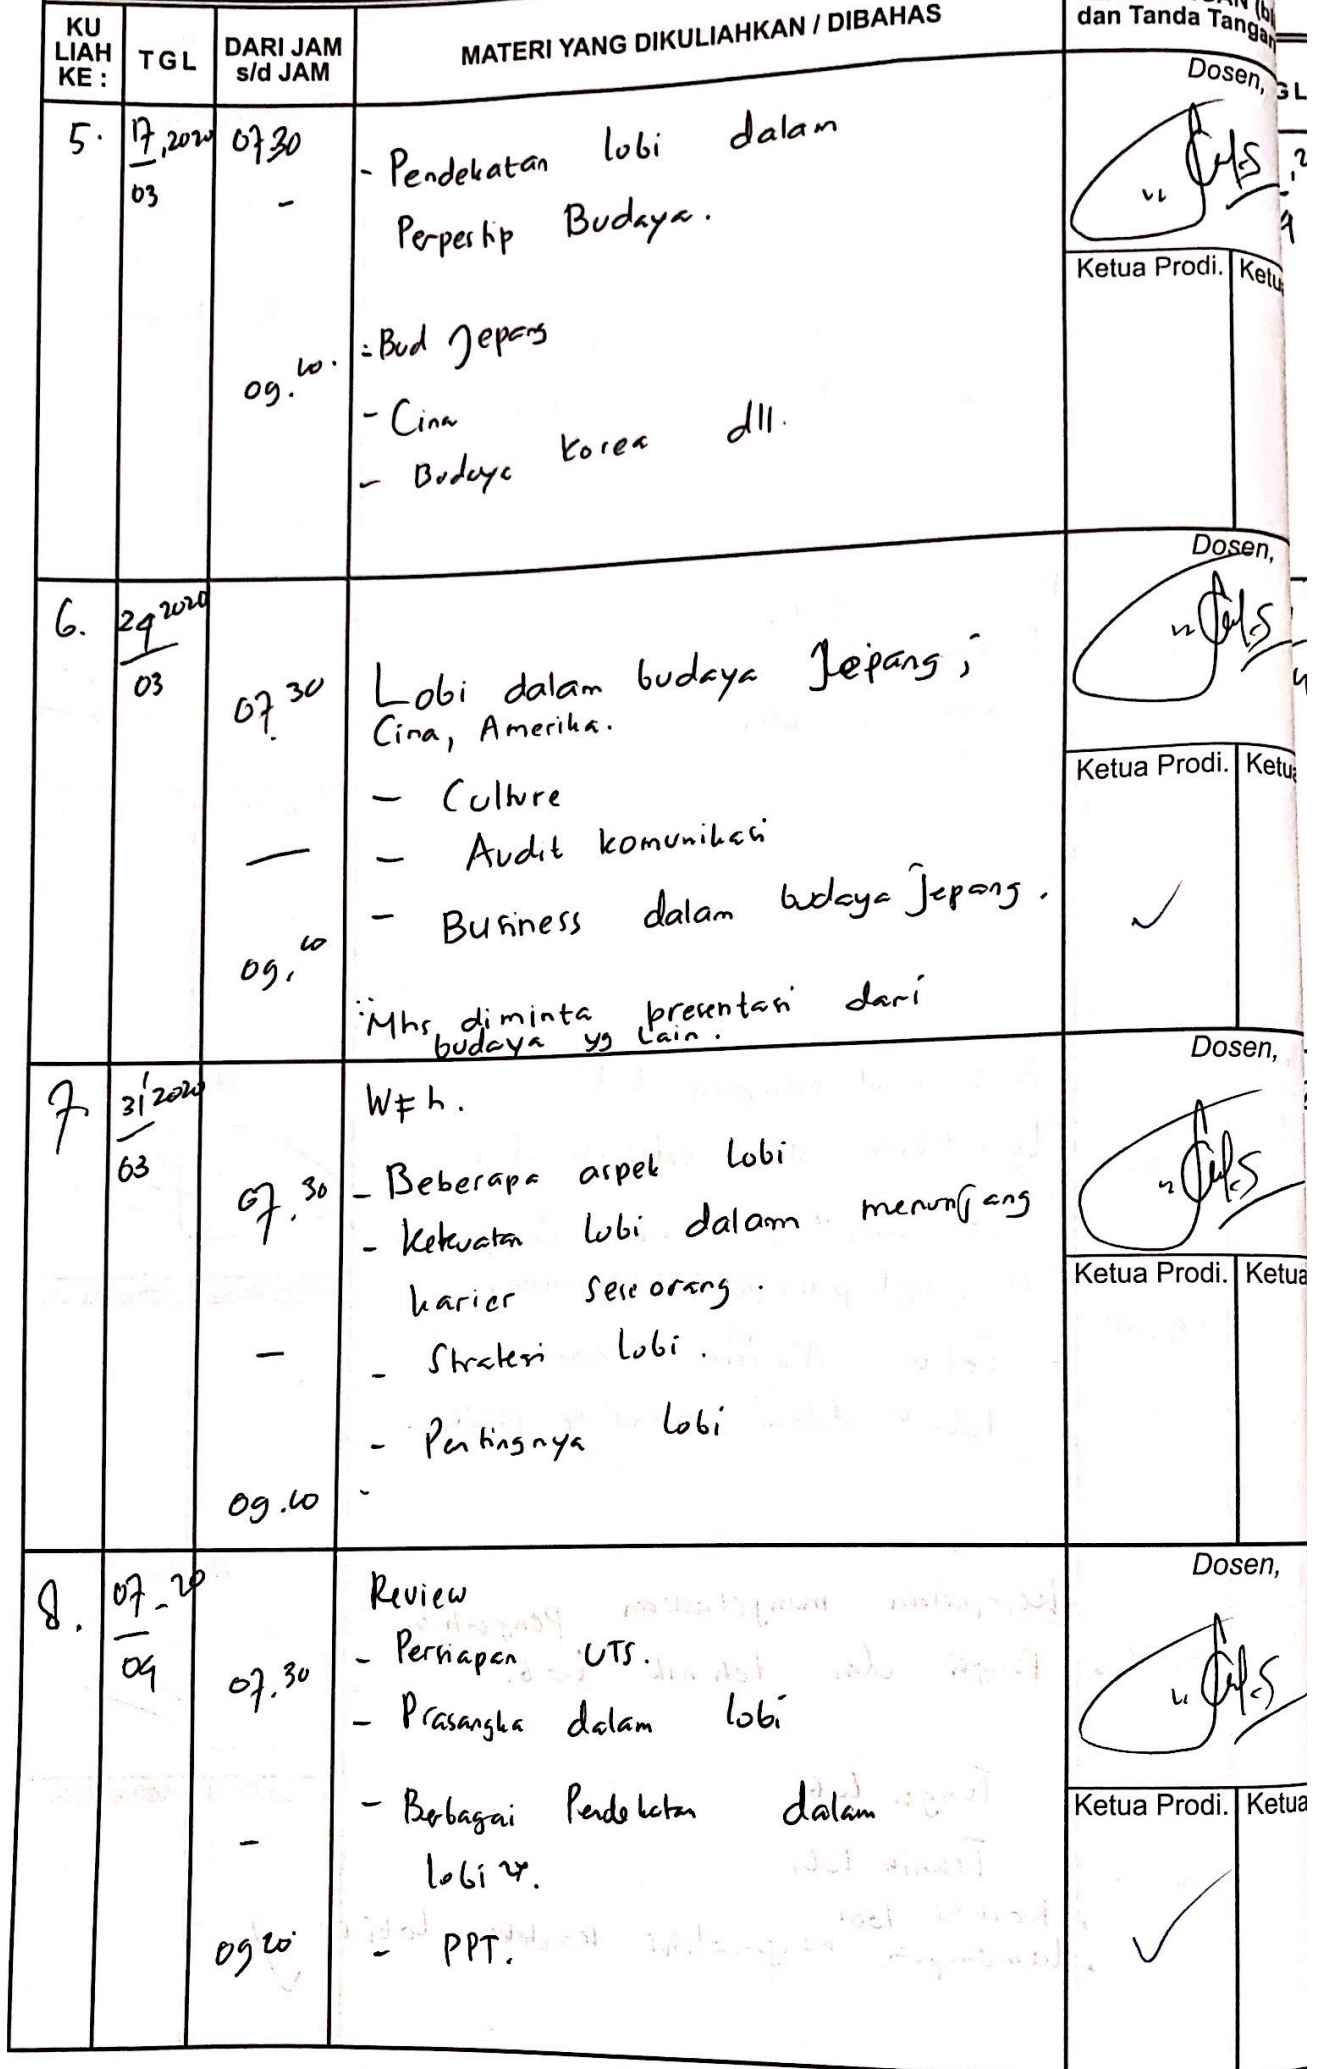 KU
LIAH
KE :
TGL
DARI JAM
s/d JAM
MATERI YANG DIKULIAHKAN / DIBAHAS
dan Tanda Tangan
5.
17, 2020
03
0730
-
09.
- Pendekatan lobi dalam
Perpestip Budaya.
- Bud Jepang
- Cina
- Budaya Korea dll.
Dosen,
Ketua Prodi.
6.
24 2020
03
07.30
—
09.
Lobi dalam budaya Jepang,
Cina, Amerika.
- Culture
- Audit komunikasi
- Business dalam budaya Jepang.
Mhs diminta presentasi dari
budaya yg Lain.
Dosen,
Ketua Prodi.
7
31 2020
03
07.30
-
09.
WFh.
- Beberapa aspek lobi
- Kekuatan lobi dalam menunjang
karier seseorang.
- Strategi lobi.
- Pentingnya lobi
-
Dosen,
Ketua Prodi.
Ketua
8.
07-20
04
07.30
-
09
Review
- Persiapan UTS.
- Prasangka dalam lobi
- Berbagai Pendekatan dalam
lobi
- PPT.
Dosen,
Ketua Prodi.
Ketua